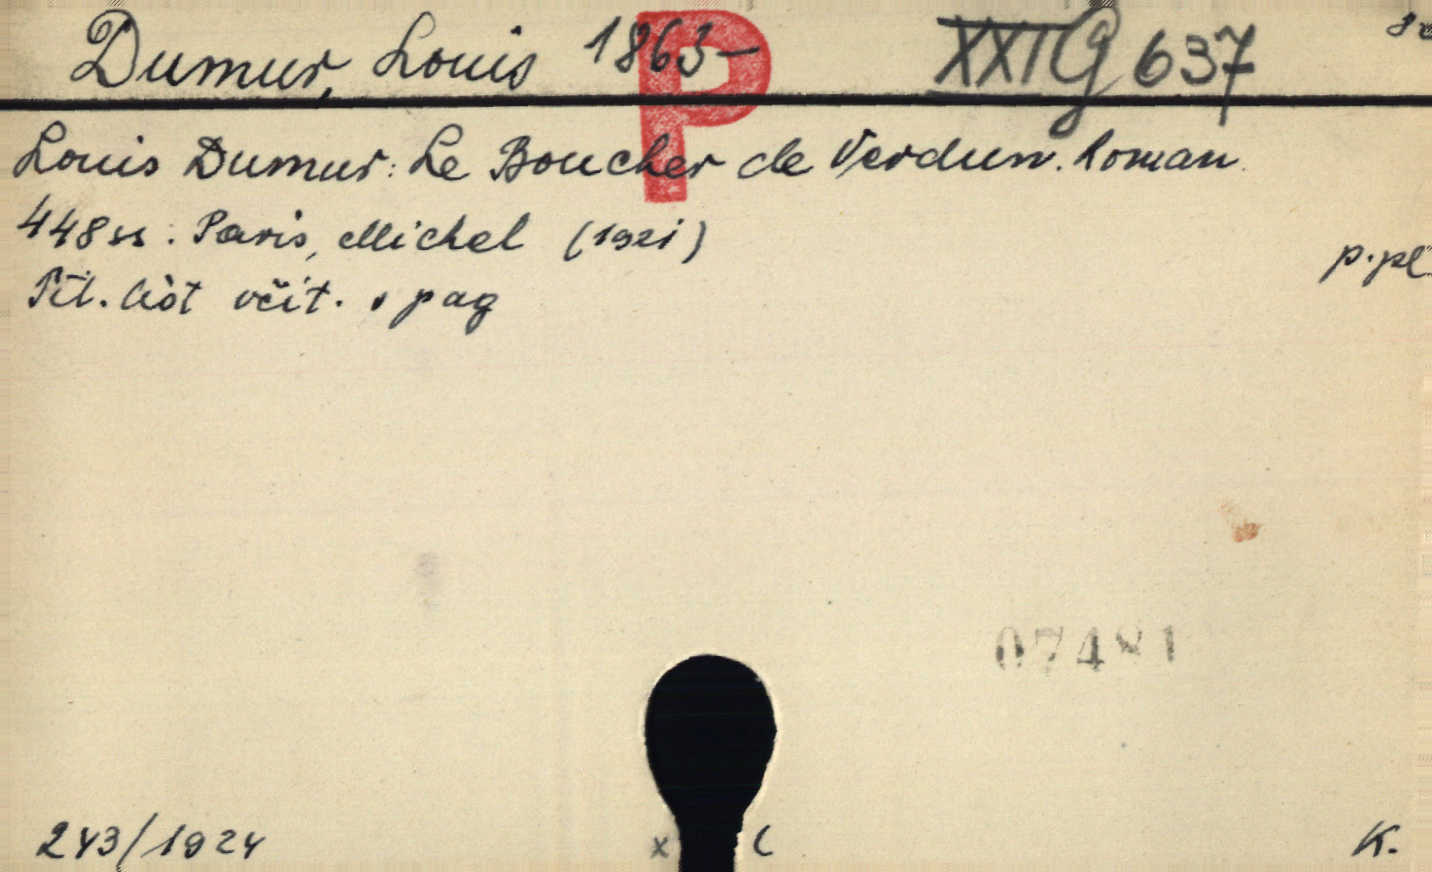 Dumur, Louis 1863- XXI G 637 8°
P
Louis Dumur: Le Boucher de Verdun. Roman.
448 ss. Paris, Michel (1921)
p. pl
Tit. list včít. v pag
07481
243/1924 x C K.